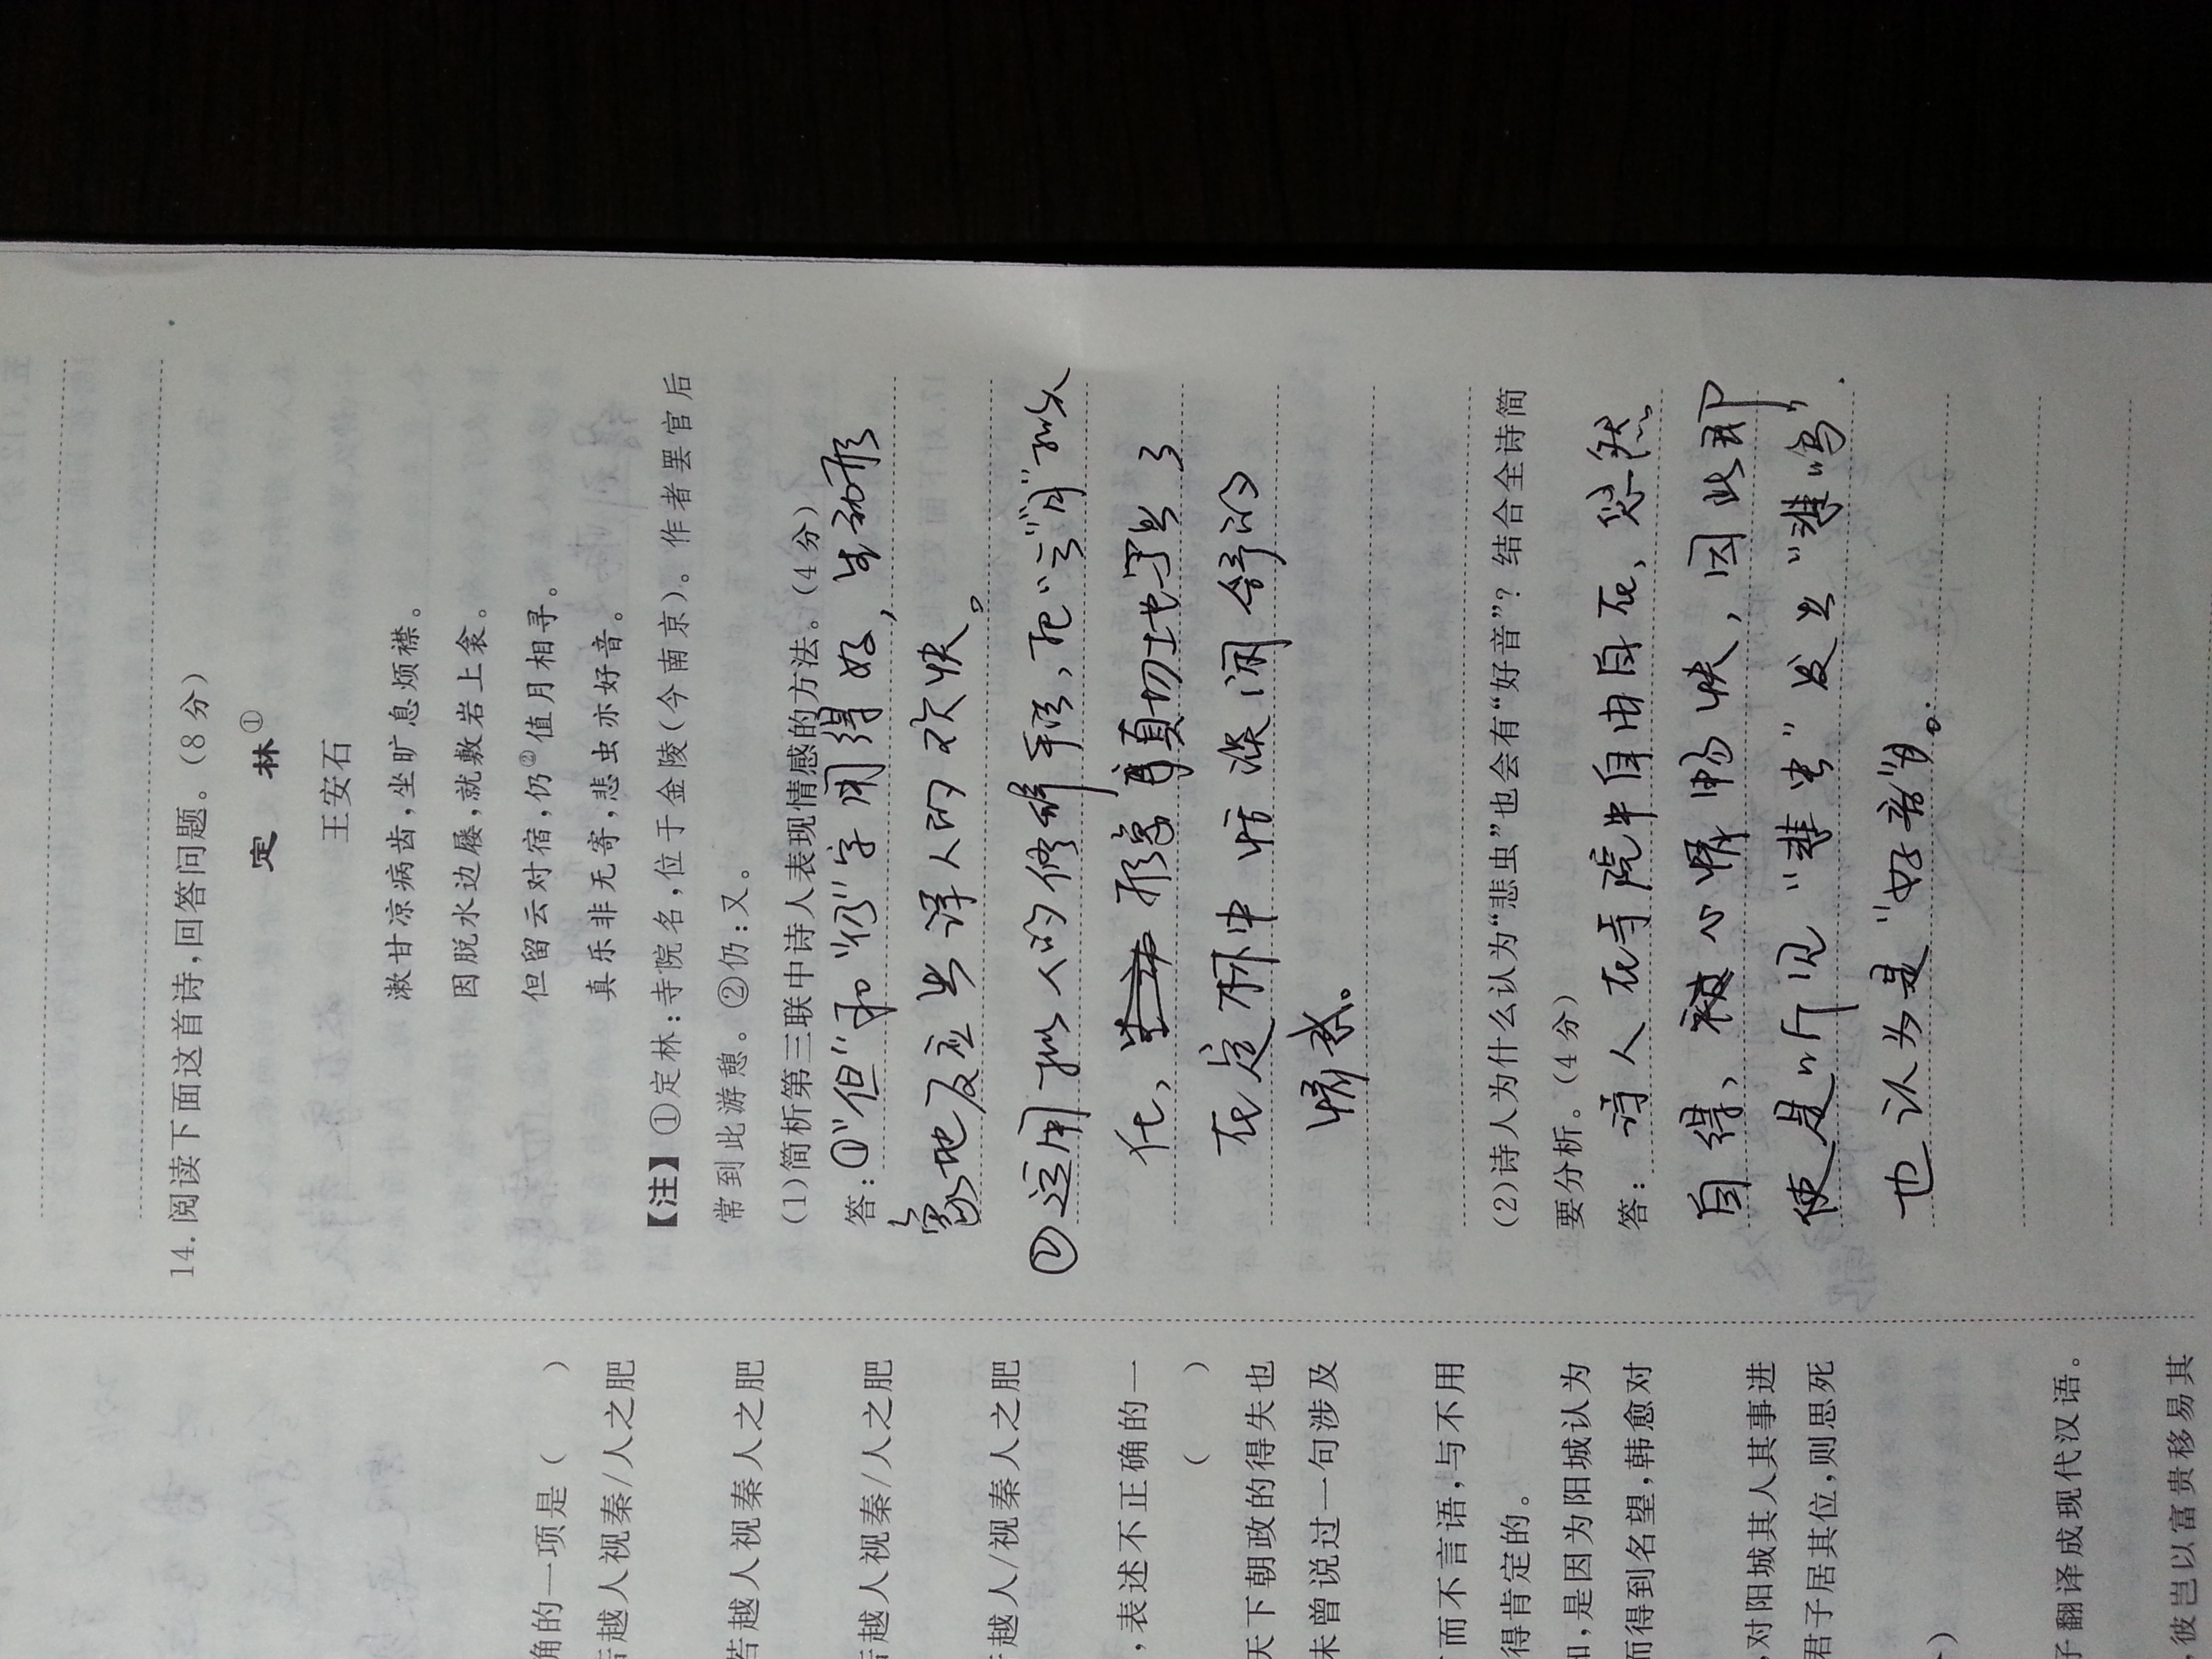 确的一项是（　　）
若越人视秦/人之肥
若越人视秦人之肥
若越人视秦/人之肥
若越人/视秦人之肥
,表述不正确的一
（　　）
天下朝政的得失也
未曾说过一句涉及
而不言语,与不用
得肯定的。
,是因为阳城认为
而得到名望,韩愈对
,对阳城其人其事进
君子居其位,则思死
)
子翻译成现代汉语。
,彼岂以富贵移易其
14.阅读下面这首诗,回答问题。(8分)
定　林①
王安石
漱甘凉病齿,坐旷息烦襟。
因脱水边屦,就敷岩上衾。
但留云对宿,仍②值月相寻。
真乐非无寄,悲虫亦好音。
【注】①定林:寺院名,位于金陵(今南京)。作者罢官后
常到此游憩。②仍:又。
(1)简析第三联中诗人表现情感的方法。(4分)
答:①“但”和“仍”字用得好,生动形
象地反应出诗人的欢快。
②运用拟人的修辞手法,把“云”“月”拟人
化,形象真切地写出了
在定林中恬淡闲舒的
情感。
(2)诗人为什么认为“悲虫”也会有“好音”?结合全诗简
要分析。(4分)
答:诗人在寺院中自由自在、悠然
自得、心情畅快,因此即
使是听见“悲虫”发出“悲鸣”
也认为是“好音”。